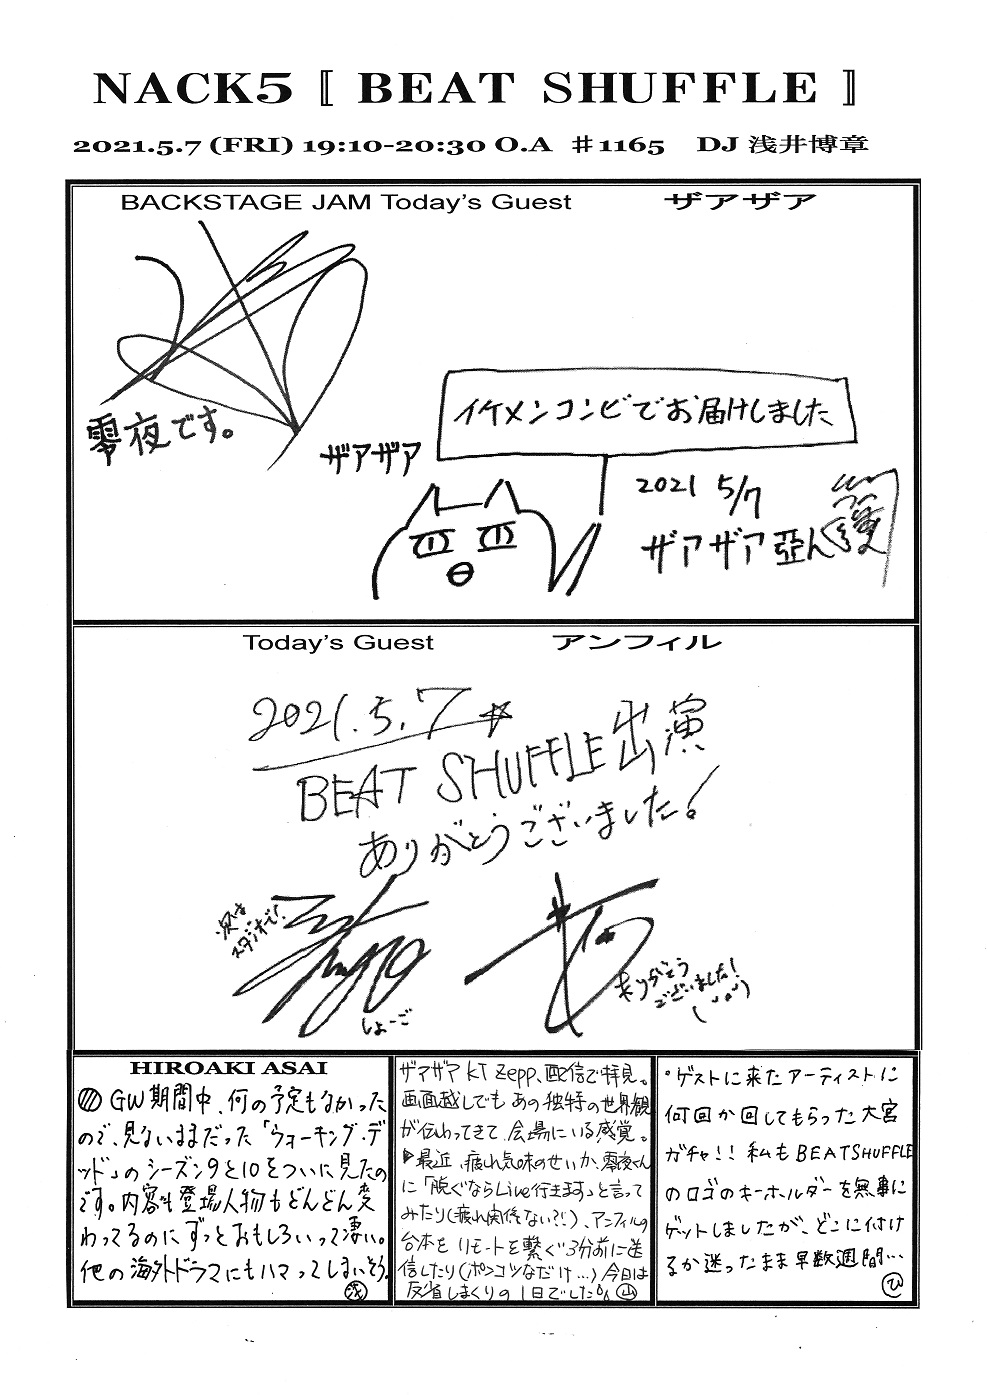 NACK5 〚 BEAT SHUFFLE 〛
2021.5.7 (FRI) 19:10-20:30 O.A ♯1165 DJ 浅井博章
BACKSTAGE JAM Today's Guest ザアザア
零夜です。
ザアザア
イケメンコンビでお届けしました
2021 5/7
ザアザア 亞ん
Today's Guest アンフィル
2021.5.7☆
BEAT SHUFFLE 出演
ありがとうございました!
次は
スタジオで!
しょーご
ありがとう
ございました!
HIROAKI ASAI
GW期間中、何の予定もなかった
ので、見ないままだった「ウォーキング・デ
ッド」のシーズン9と10をついに見たの
です。内容も登場人物もどんどん変
わってるのにずっとおもしろいって凄い。
他の海外ドラマにもハマってしまいそう。
浅
ザアザア KT Zepp、配信で拝見。
画面越しでもあの独特の世界観
が伝わってきて、会場にいる感覚。
▶最近、疲れ気味のせいか、零夜くん
に「脱ぐならLive行きます」と言って
みたり(疲れ関係ない?!)、アンフィルの
台本をリモートを繋ぐ3分前に送
信したり(ポンコツなだけ…)今日は
反省しまくりの1日でした。 山
・ゲストに来たアーティストに
何回か回してもらった大宮
ガチャ!! 私もBEATSHUFFLE
のロゴのキーホルダーを無事に
ゲットしましたが、どこに付け
るか迷ったまま早数週間…
ひ